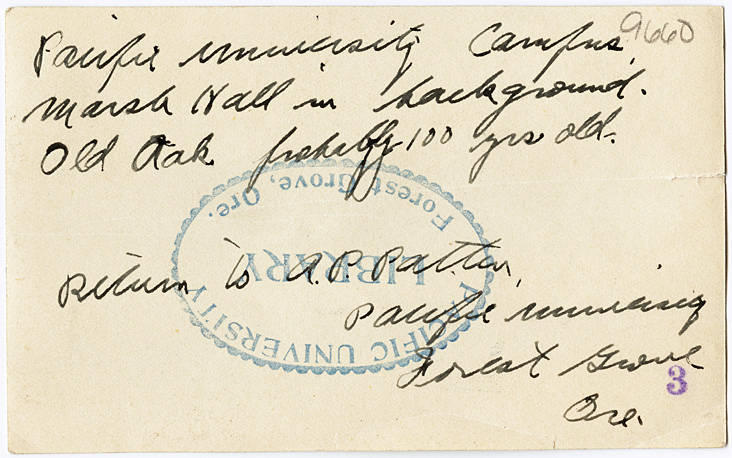 9660
Pacific University Campus,
Marsh Hall in background.
Old Oak probably 100 yrs old.
Forest Grove, Ore.
LIBRARY
PACIFIC UNIVERSITY
Return to A.P. Patten,
Pacific University
Forest Grove
3
Ore.